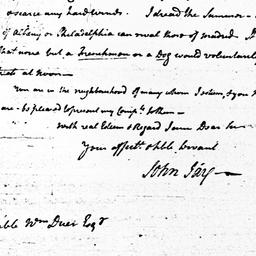 scarce any hard winds. I dread the Summer -
of Albany or Philadelphia can rival those of madrid.
that none but a Frenchman or a Dog would voluntarily
at Noon -
You are in the neighbourhood of many whom I esteem, &
are - be pleased to present my Compts. to them -
with real Esteem & Regard I am Dear Sir
Your affectte. & hble. Servant
John Jay -
Wm Duer Esqr